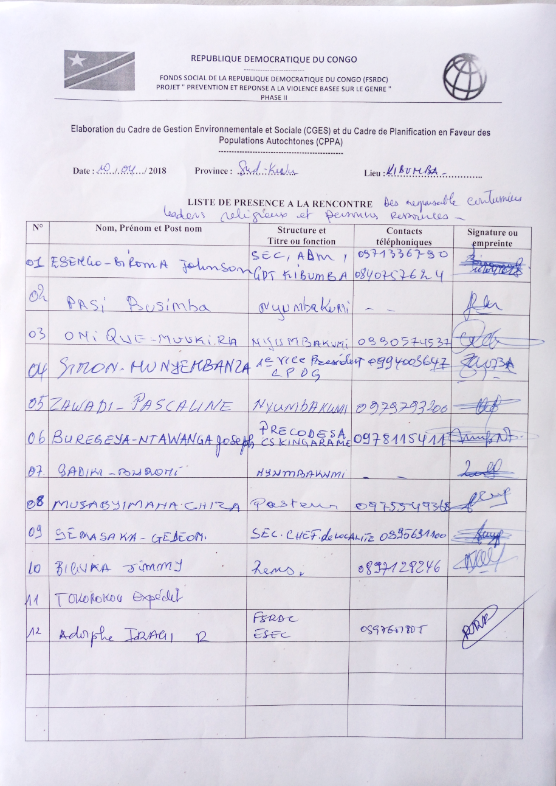 REPUBLIQUE DEMOCRATIQUE DU CONGO
FONDS SOCIAL DE LA REPUBLIQUE DEMOCRATIQUE DU CONGO (FSRDC)
PROJET " PREVENTION ET REPONSE A LA VIOLENCE BASEE SUR LE GENRE "
PHASE II
Elaboration du Cadre de Gestion Environnementale et Sociale (CGES) et du Cadre de Planification en Faveur des
Populations Autochtones (CPPA)
Date : 10/04/2018 Province : Sud-Kivu Lieu : KIBUMBA
LISTE DE PRESENCE A LA RENCONTRE Des responsable coutumiers
leaders religieux et personnes ressources
N° Nom, Prénom et Post nom Structure et Titre ou fonction Contacts téléphoniques Signature ou empreinte
01 ESERGO-BIROMA Johnson SEC, ADM, GPT KIBUMBA 0971336790 0840757624
02 PASI Busimba Nyumbakumi - -
03 ONIQUE-MUUKIRA NYUMBAKUMI 0990574537
04 SIMON-MUNYEMBANZA 1er Vice President CPDG 0994005647
05 ZAWADI-PASCALINE NYUMBAKUMI 0979793200
06 BUREGEYA-NTAWANGA Joseph PRECODESA CS KINGARAME 0978115411
07 NYUMBAKUMI - -
08 MUSABYIMANA-CHIZA Pasteur 0975549368
09 SEMASAKA-GEDEON SEC. CHEF de LOCALITE 0995691100
10 JIMMY 0897129246
11 TOKOROKOU Expédit
12 Adolphe IRAGI R FSRDC ESEC